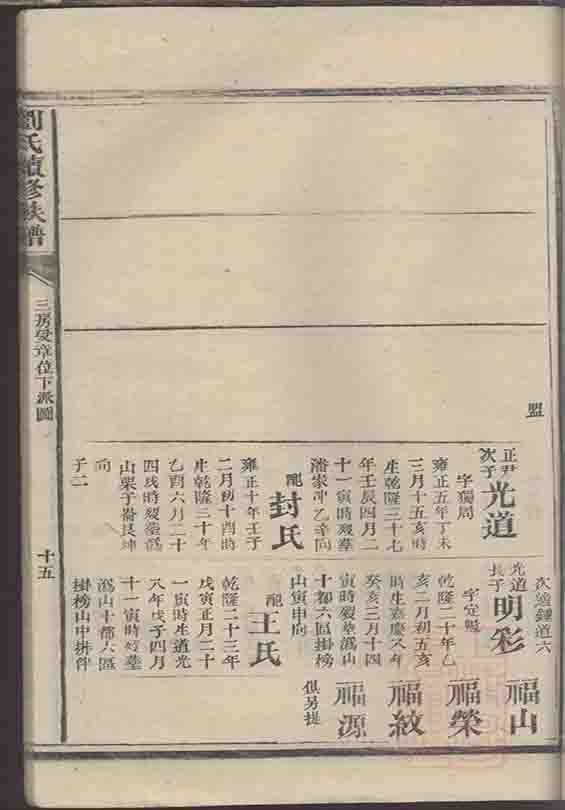 盟
正尹
次子
光道
字獨周
雍正五年丁未
三月十五亥時
生乾隆三十七
年壬辰四月二
十一寅時歿葬
潘家冲乙辛向
配封氏
雍正十年壬子
二月初十酉時
生乾隆三十年
乙酉六月二十
四戌時歿葬溈
山栗子崙艮坤
向
子二
次適鍾道六
光道
長子
明彩
乾隆二十年乙
亥二月初五亥
時生嘉慶八年
癸亥三月十四
寅時歿葬溈山
十都六區掛榜
山寅申向
配王氏
乾隆二十三年
戊寅正月二十
一寅時生道光
八年戊子四月
十一寅時歿葬
溈山十都六區
掛榜山中
福山
福榮
福紋
福源
俱另提
劉氏續修族譜
三房受章位下派圖
十五